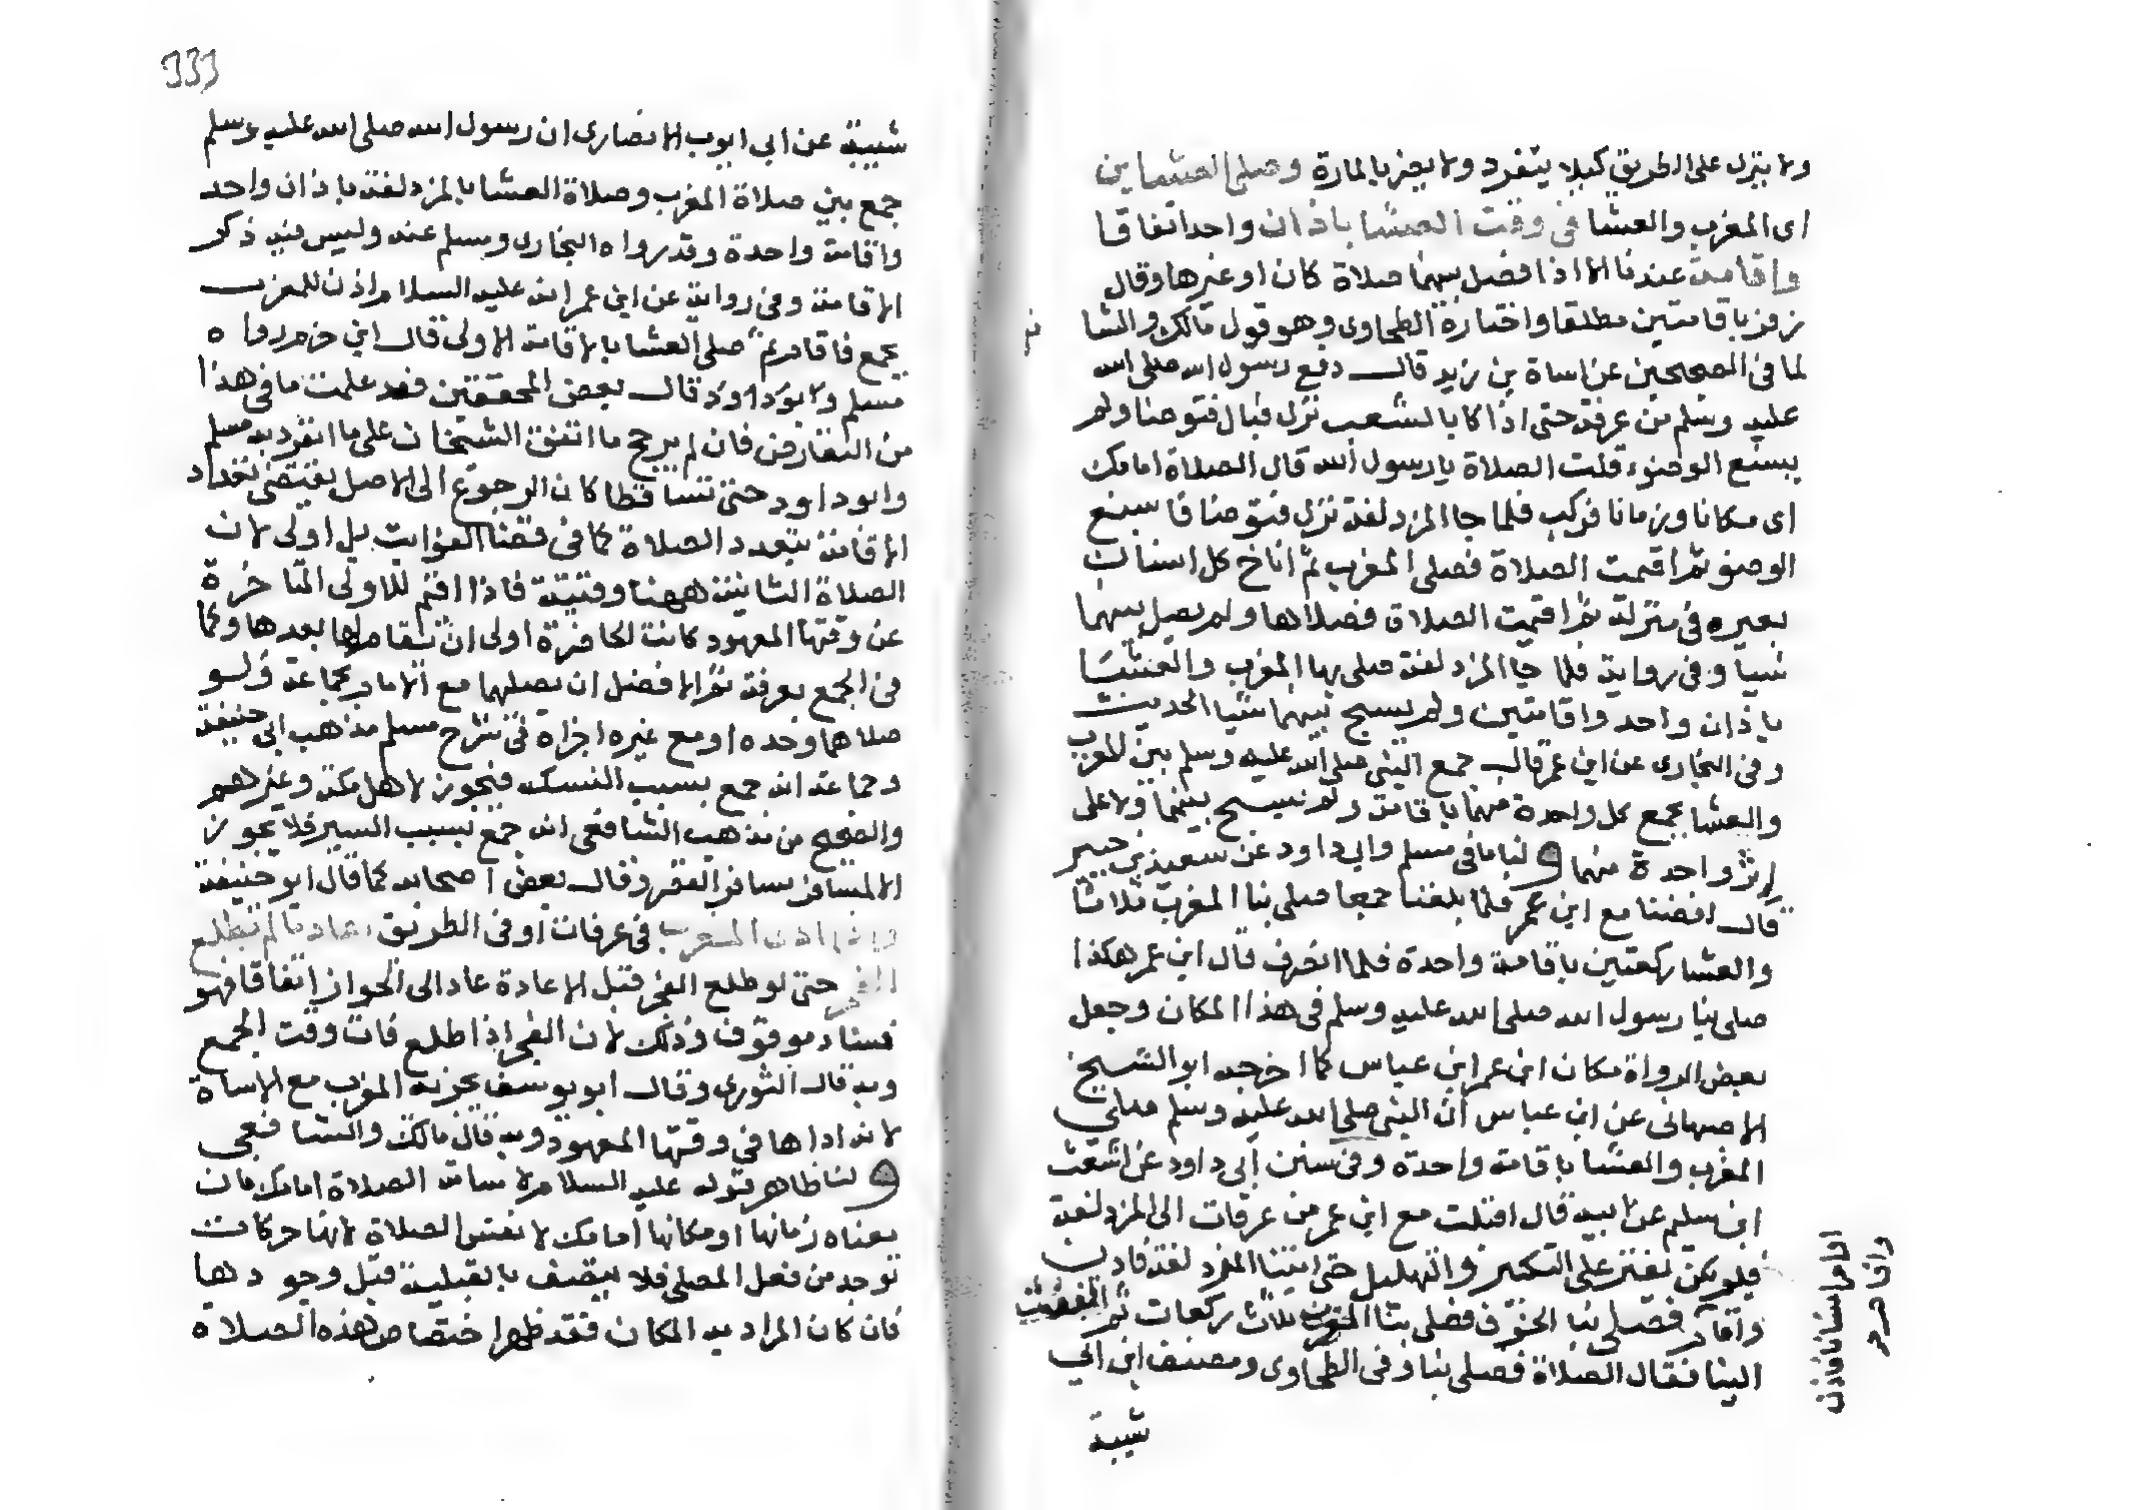 ولا ينزل على الطريق كيلا ينفرد ولا يضر بالمارة وصلى العشاين
اى المغرب والعشا فى وقت العشا باذان واحد اتفاقا
واقامة عندنا الا اذا فصل بينهما صلاة كان او غيرها وقال
زفر باقامتين مطلقا واختاره الطحاوى وهو قول مالك والشا
لما فى الصحيحين عن اسامة بن زيد قال دفع رسول الله صلى الله
عليه وسلم من عرفة حتى اذا كا بالشعب نزل فبال فتوضا ولم
يسبغ الوضوء قلت الصلاة يا رسول الله قال الصلاة امامك
اى مكانا وزمانا فركب فلما جا المزدلفة نزل فتوضا فاسبغ
الوضو ثم اقيمت الصلاة فصلى المغرب ثم اناخ كل انسان
بعيره فى منزله ثم اقيمت الصلاة فصلاها ولم يصل بينهما
شيا وفى رواية فلما جا المزدلفة صلى بها المغرب والعشا
باذان واحد واقامتين ولم يسبح بينهما شيا الحديث
وفى البخارى عن ابن عمر قال جمع النبى صلى الله عليه وسلم بين المغرب
والعشا بجمع كل واحدة منهما باقامة ولم يسبح بينهما ولا على
اثر واحدة منهما ولنا ما فى مسلم وابى داود عن سعيد بن جبير
قال افضنا مع ابن عمر فلما بلغنا جمعا صلى بنا المغرب ثلاثا
والعشا ركعتين باقامة واحدة فلما انصرف قال ابن عمر هكذا
صلى بنا رسول الله صلى الله عليه وسلم فى هذا المكان وجعل
بعض الرواة مكان ابن عمر ابن عباس كما اخرجه ابو الشيخ
الاصبهانى عن ابن عباس ان النبى صلى الله عليه وسلم صلى
المغرب والعشا باقامة واحدة وفى سنن ابى داود عن اشعث
ابن سليم عن ابيه قال اقبلت مع ابن عمر من عرفات الى المزدلفة
فلم يكن يفتر على التكبير والتهليل حتى اتينا المزدلفة فاذن
واقام فصلى بنا المغرب ثلاث ركعات ثم التفت
الينا فقال الصلاة فصلى بنا وفى الطحاوى ومصنف ابن ابى
شيبة
او امر انسانا فاذن
واقام
333
شيبة عن ابى ايوب الانصارى ان رسول الله صلى الله عليه وسلم
جمع بين صلاة المغرب وصلاة العشا بالمزدلفة باذان واحد
واقامة واحدة وقد رواه البخارى ومسلم عنه وليس فيه ذكر
الاقامة وفى رواية عن ابن عمر انه عليه السلام اذن للمغرب
بجمع فاقام ثم صلى العشا بالاقامة الاولى قال ابن حزم رواه
مسلم وابو داود قال بعض المحققين فقد علمت ما فى هذا
من التعارض فان لم يرجح ما اتفق الشيخان على ما انفرد به مسلم
وابو داود حتى تساقطا كان الرجوع الى الاصل يقتضى تعداد
الاقامة بتعدد الصلاة كما فى قضا الفوايت بل اولى لان
الصلاة الثانية ههنا وقتية فاذا اقيم للاولى المتاخرة
عن وقتها المعهود كانت الحاضرة اولى ان تقام لها بعدها وكما
فى الجمع بعرفة ثم الافضل ان يصليهما مع الامام بجماعة ولو
صلاهما وحده او مع غيره اجزاه فى شرح مسلم مذهب ابى حنيفة
وجماعة انه جمع بسبب النسك فيجوز لاهل مكة وغيرهم
والصحيح من مذهب الشافعى انه جمع بسبب السير فلا يجوز
الا لمسافر مسافة القصر وقال بعض اصحابه كما قال ابو حنيفة
وان ادى المغرب فى عرفات او فى الطريق اعاد ما لم يطلع
الفجر حتى لو طلع الفجر قبل الاعادة عاد الى الجواز اتفاقا فهو
فساد موقوف وذلك لان الفجر اذا طلع فات وقت الجمع
وبه قال الثورى وقال ابو يوسف يجزيه المغرب مع الاساة
لانه اداها فى وقتها المعهود وبه قال مالك والشافعى
ولنا ظاهر قوله عليه السلام لاسامة الصلاة امامك فان
معناه زمانها او مكانها امامك لا نفس الصلاة لانها حركات
توجد من فعل المصلى فلا يتصف بالقبلية قبل وجودها
فان كان المراد به المكان فقد ظهر اختصاص هذه الصلاة